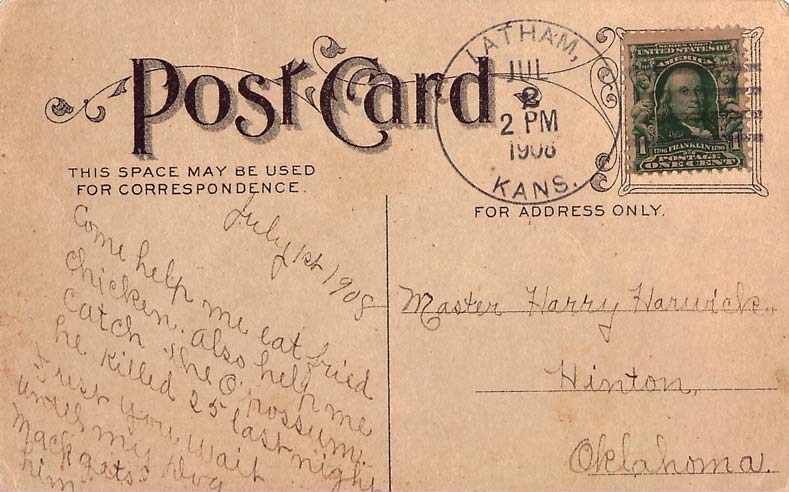 Post Card
THIS SPACE MAY BE USED
FOR CORRESPONDENCE.
LATHAM,
JUL
2
2 PM
1908
KANS.
SERIES 1902
UNITED STATES OF
AMERICA
1 1706 FRANKLIN 1790 1
POSTAGE
ONE CENT
FOR ADDRESS ONLY.
July 1st 1908
Come help me eat fried
chicken. Also help me
catch the O'possum.
he killed 25 last night
Just you, wait
until my Dog
Mack gets
him
Master Harry Harwick.,
Hinton,
Oklahoma.